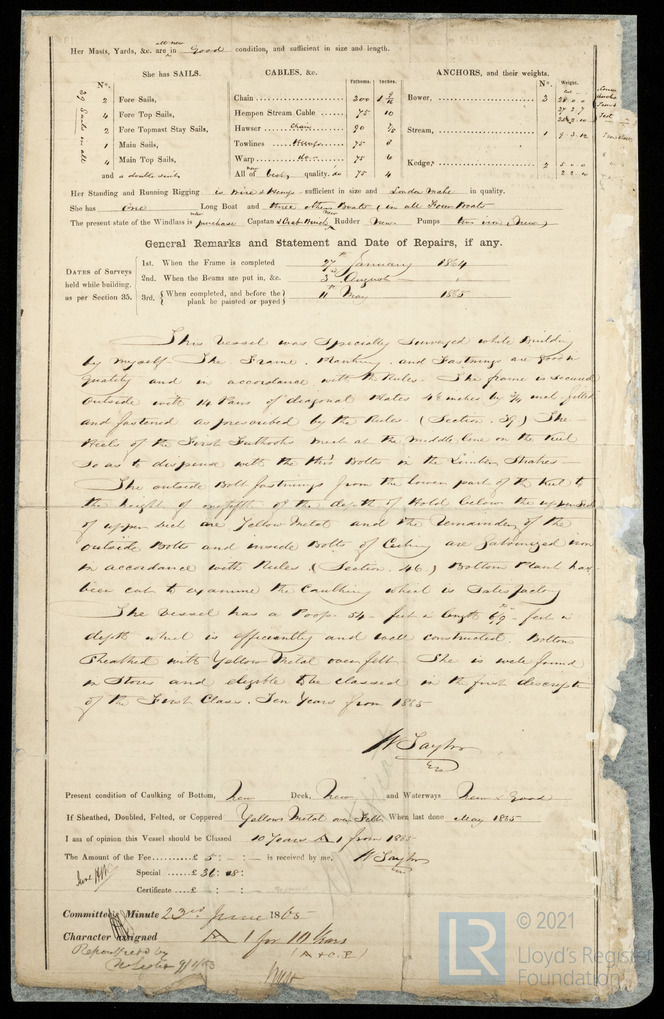 all new
Her Masts, Yards, &c. are in Good condition, and sufficient in size and length.
She has SAILS.
CABLES, &c.
Fathoms. Inches.
ANCHORS, and their weights.
Nº. Weight.
Nº.
39 Sails in all
2 Fore Sails,
4 Fore Top Sails,
2 Fore Topmast Stay Sails,
1 Main Sails,
4 Main Top Sails,
and a double suit
Chain 200
Hempen Stream Cable 75 10
Hawser Chain 90 7/8
Towlines Hemp 75 8
Warp do 75 6
All of best quality. do 75 4
Bower, 3
Stream, 1
Kedge, 2 5 . 0 . 0
Her Standing and Running Rigging is Wire & Hemp sufficient in size and London Make in quality.
She has One Long Boat and three others Boats in all Four Boats
The present state of the Windlass is new purchase Capstan & Crab Winch new Rudder New Pumps two iron (New)
General Remarks and Statement and Date of Repairs, if any.
DATES of Surveys held while building, as per Section 35.
1st. When the Frame is completed 27th January 1864
2nd. When the Beams are put in, &c. 3rd August
3rd. When completed, and before the plank be painted or payed 11th May 1865
This Vessel was Specially Surveyed while Building
by myself. The Frame, Planking, and Fastnings are good in
quality and in accordance with the Rules. The frame is secured
outside with 14 Pairs of diagonal Plates 4½ inches by ¾ inch fitted
and fastened as prescribed by the Rules. (Section. 39) The
Heels of the First Futtocks meet at the middle line on the Keel
so as to dispense with the thro Bolts in the Limber Strakes
The outside Bolt fastnings from the lower part of the Keel to
the height of one fifth of the depth of Hold below the upper side
of upper deck are Yellow Metal and the Remainder of the
outside Bolts and inside Bolts of Ceiling are Galvanized iron
in accordance with Rules (Section. 46.) Bottom Plank has
been cut to examine the Caulking which is Satisfactory
The Vessel has a Poop 54 feet in length feet in
depth which is efficiently and well constructed. Bottom
Sheathed with Yellow Metal over felt. She is well found
in Stores and eligible to be classed in the first descript
of the First Class. Ten Years from 1865
W Taylor
Present condition of Caulking of Bottom, New Deck, New and Waterways New & Good
If Sheathed, Doubled, Felted, or Coppered Yellow Metal over Felt When last done May 1865
I am of opinion this Vessel should be Classed 10 Years A 1 from 1865
The Amount of the Fee £ 5 : - : - is received by me, W Taylor
Special £ 36 : 18 :
Certificate £ - : - :
Committee's Minute 23rd June 1865
Character assigned A 1 for 10 Years
(A & C. P.)
LR
© 2021
Lloyd's Register
Foundation